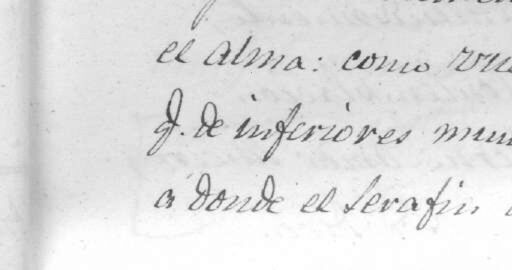 el alma: como
q. de inferiores
a donde el Serafin